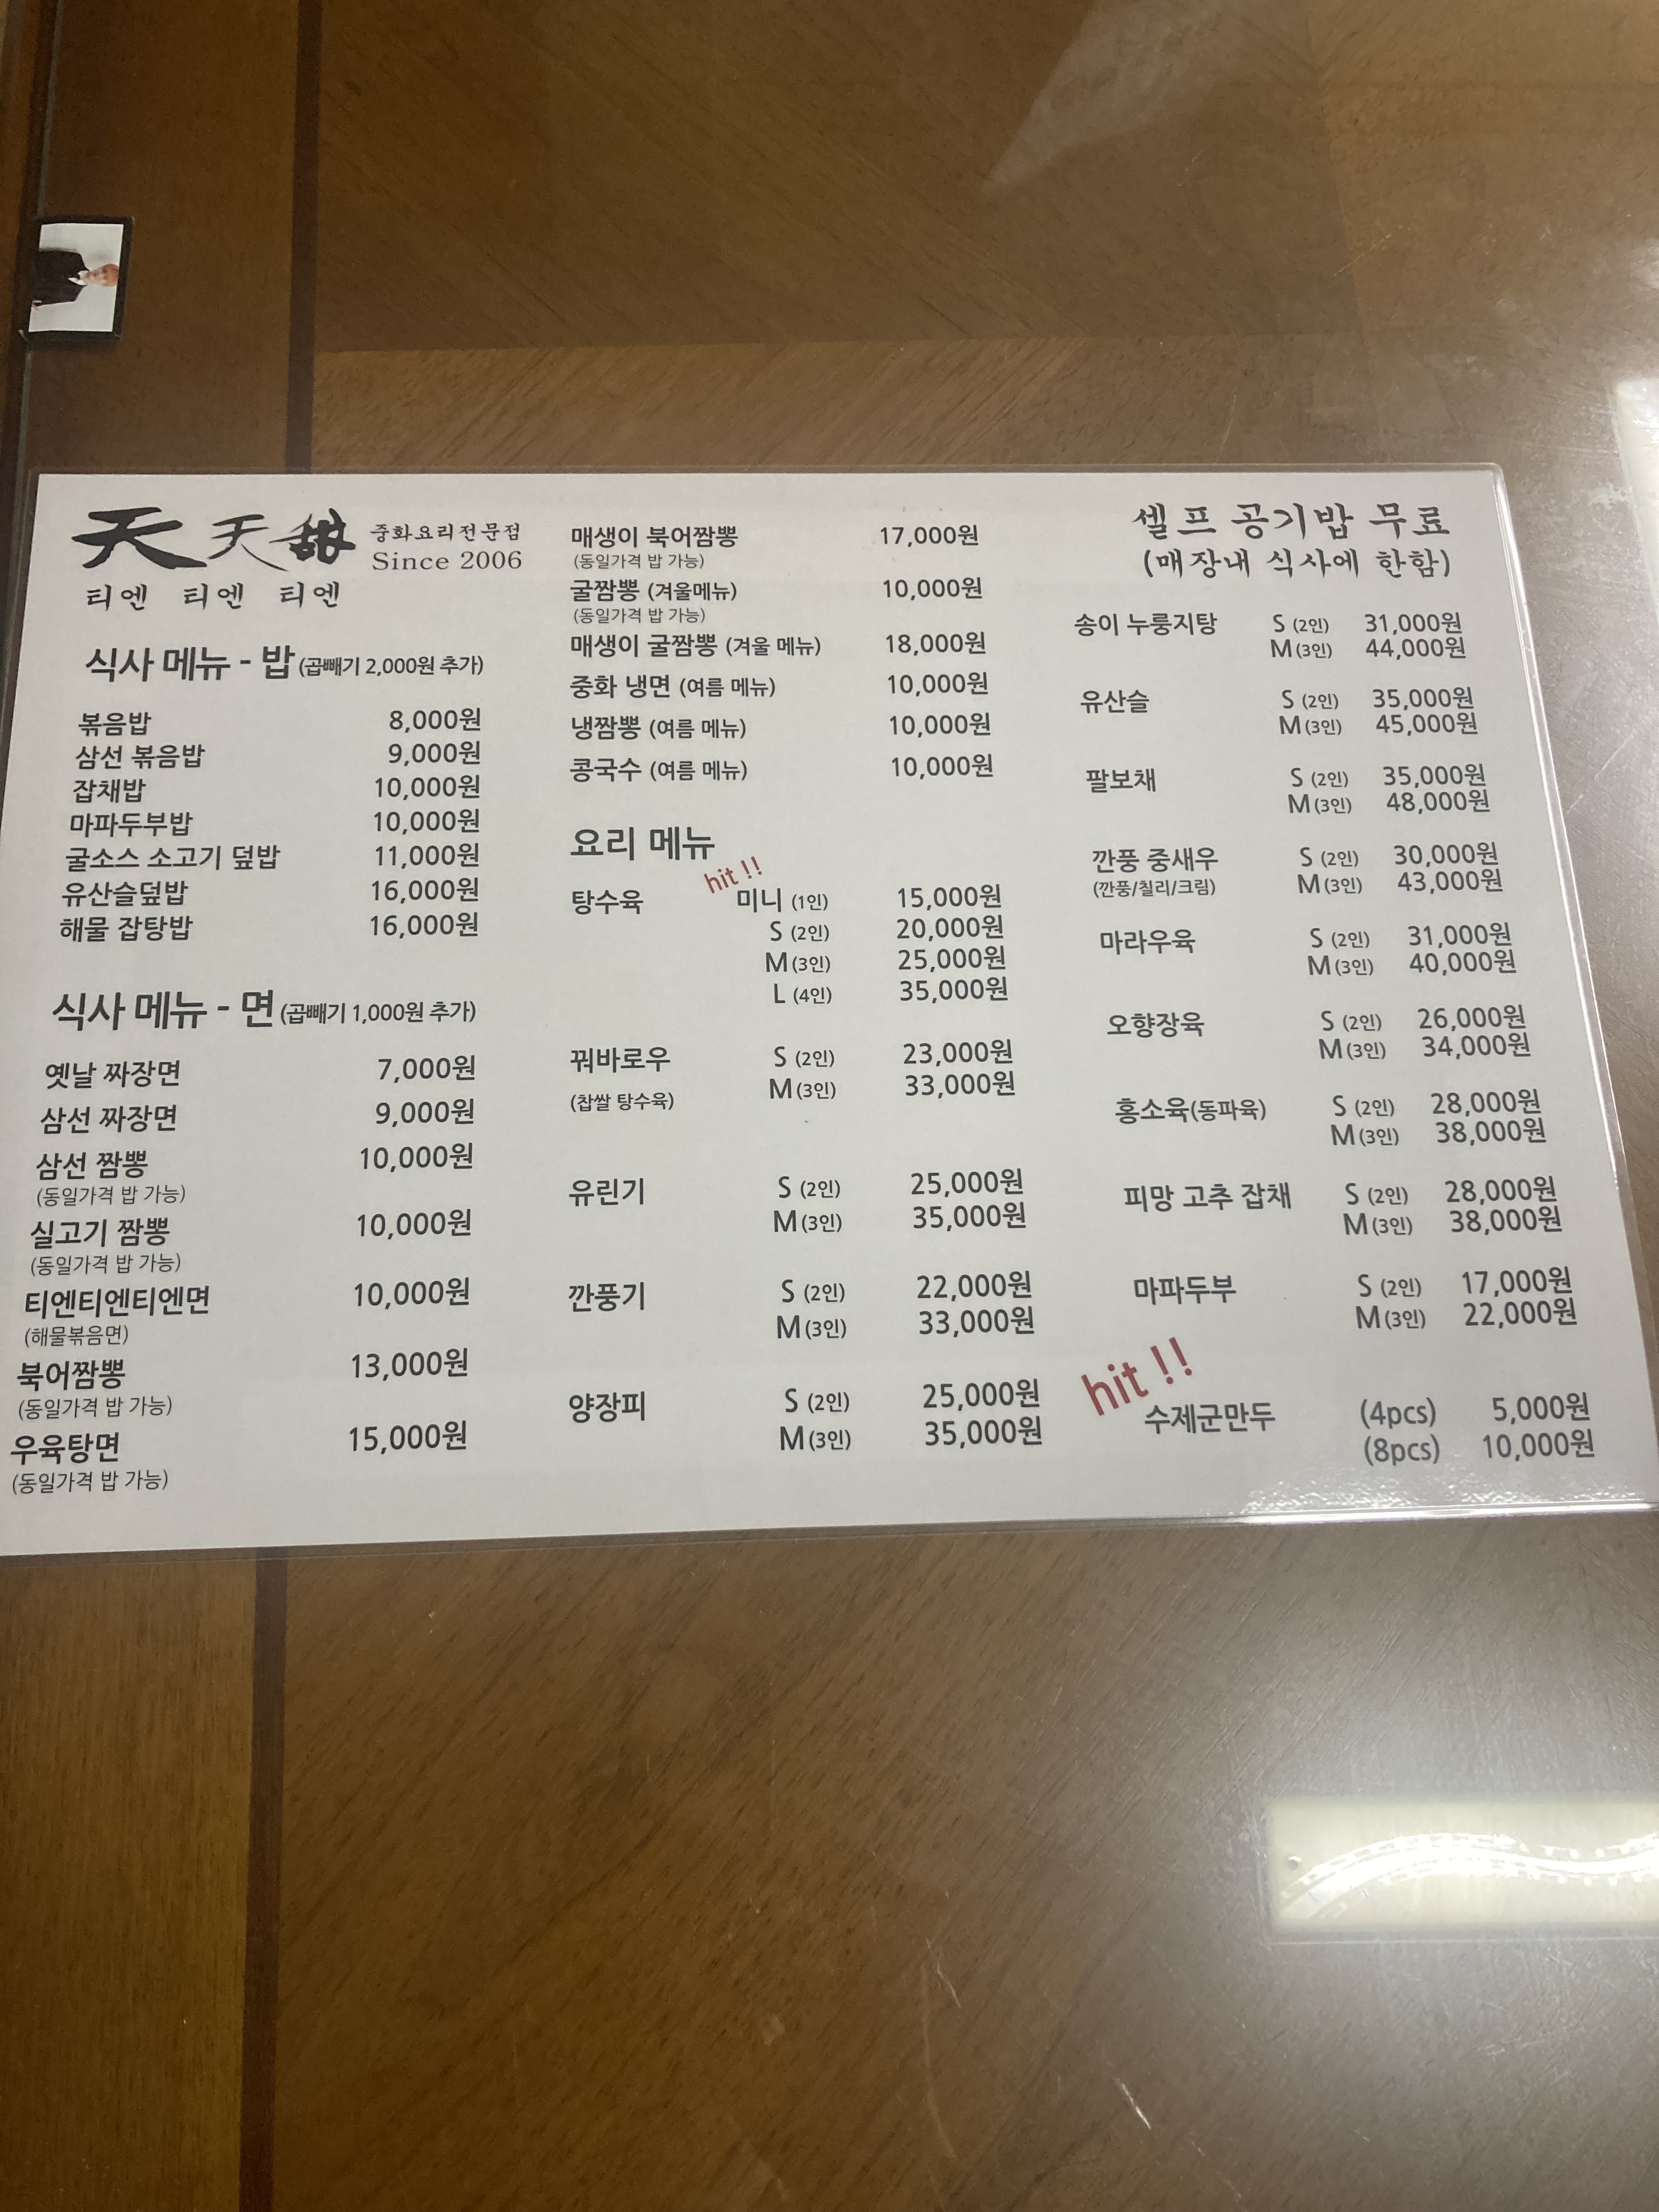 天天甜 중화요리전문점
Since 2006
티엔 티엔 티엔
식사 메뉴 - 밥 (곱빼기 2,000원 추가)
볶음밥 8,000원
삼선 볶음밥 9,000원
잡채밥 10,000원
마파두부밥 10,000원
굴소스 소고기 덮밥 11,000원
유산슬덮밥 16,000원
해물 잡탕밥 16,000원
식사 메뉴 - 면 (곱빼기 1,000원 추가)
옛날 짜장면 7,000원
삼선 짜장면 9,000원
삼선 짬뽕 10,000원
(동일가격 밥 가능)
실고기 짬뽕 10,000원
(동일가격 밥 가능)
티엔티엔티엔면 10,000원
(해물볶음면)
북어짬뽕 13,000원
(동일가격 밥 가능)
우육탕면 15,000원
(동일가격 밥 가능)
매생이 북어짬뽕 17,000원
(동일가격 밥 가능)
굴짬뽕 (겨울메뉴) 10,000원
(동일가격 밥 가능)
매생이 굴짬뽕 (겨울 메뉴) 18,000원
중화 냉면 (여름 메뉴) 10,000원
냉짬뽕 (여름 메뉴) 10,000원
콩국수 (여름 메뉴) 10,000원
요리 메뉴
hit !!
탕수육 미니 (1인) 15,000원
S (2인) 20,000원
M (3인) 25,000원
L (4인) 35,000원
꿔바로우 S (2인) 23,000원
M (3인) 33,000원
(찹쌀 탕수육)
유린기 S (2인) 25,000원
M (3인) 35,000원
깐풍기 S (2인) 22,000원
M (3인) 33,000원
양장피 S (2인) 25,000원
M (3인) 35,000원
셀프 공기밥 무료
(매장내 식사에 한함)
송이 누룽지탕 S (2인) 31,000원
M (3인) 44,000원
유산슬 S (2인) 35,000원
M (3인) 45,000원
팔보채 S (2인) 35,000원
M (3인) 48,000원
깐풍 중새우 S (2인) 30,000원
(깐풍/칠리/크림) M (3인) 43,000원
마라우육 S (2인) 31,000원
M (3인) 40,000원
오향장육 S (2인) 26,000원
M (3인) 34,000원
홍소육(동파육) S (2인) 28,000원
M (3인) 38,000원
피망 고추 잡채 S (2인) 28,000원
M (3인) 38,000원
마파두부 S (2인) 17,000원
M (3인) 22,000원
hit !!
수제군만두 (4pcs) 5,000원
(8pcs) 10,000원